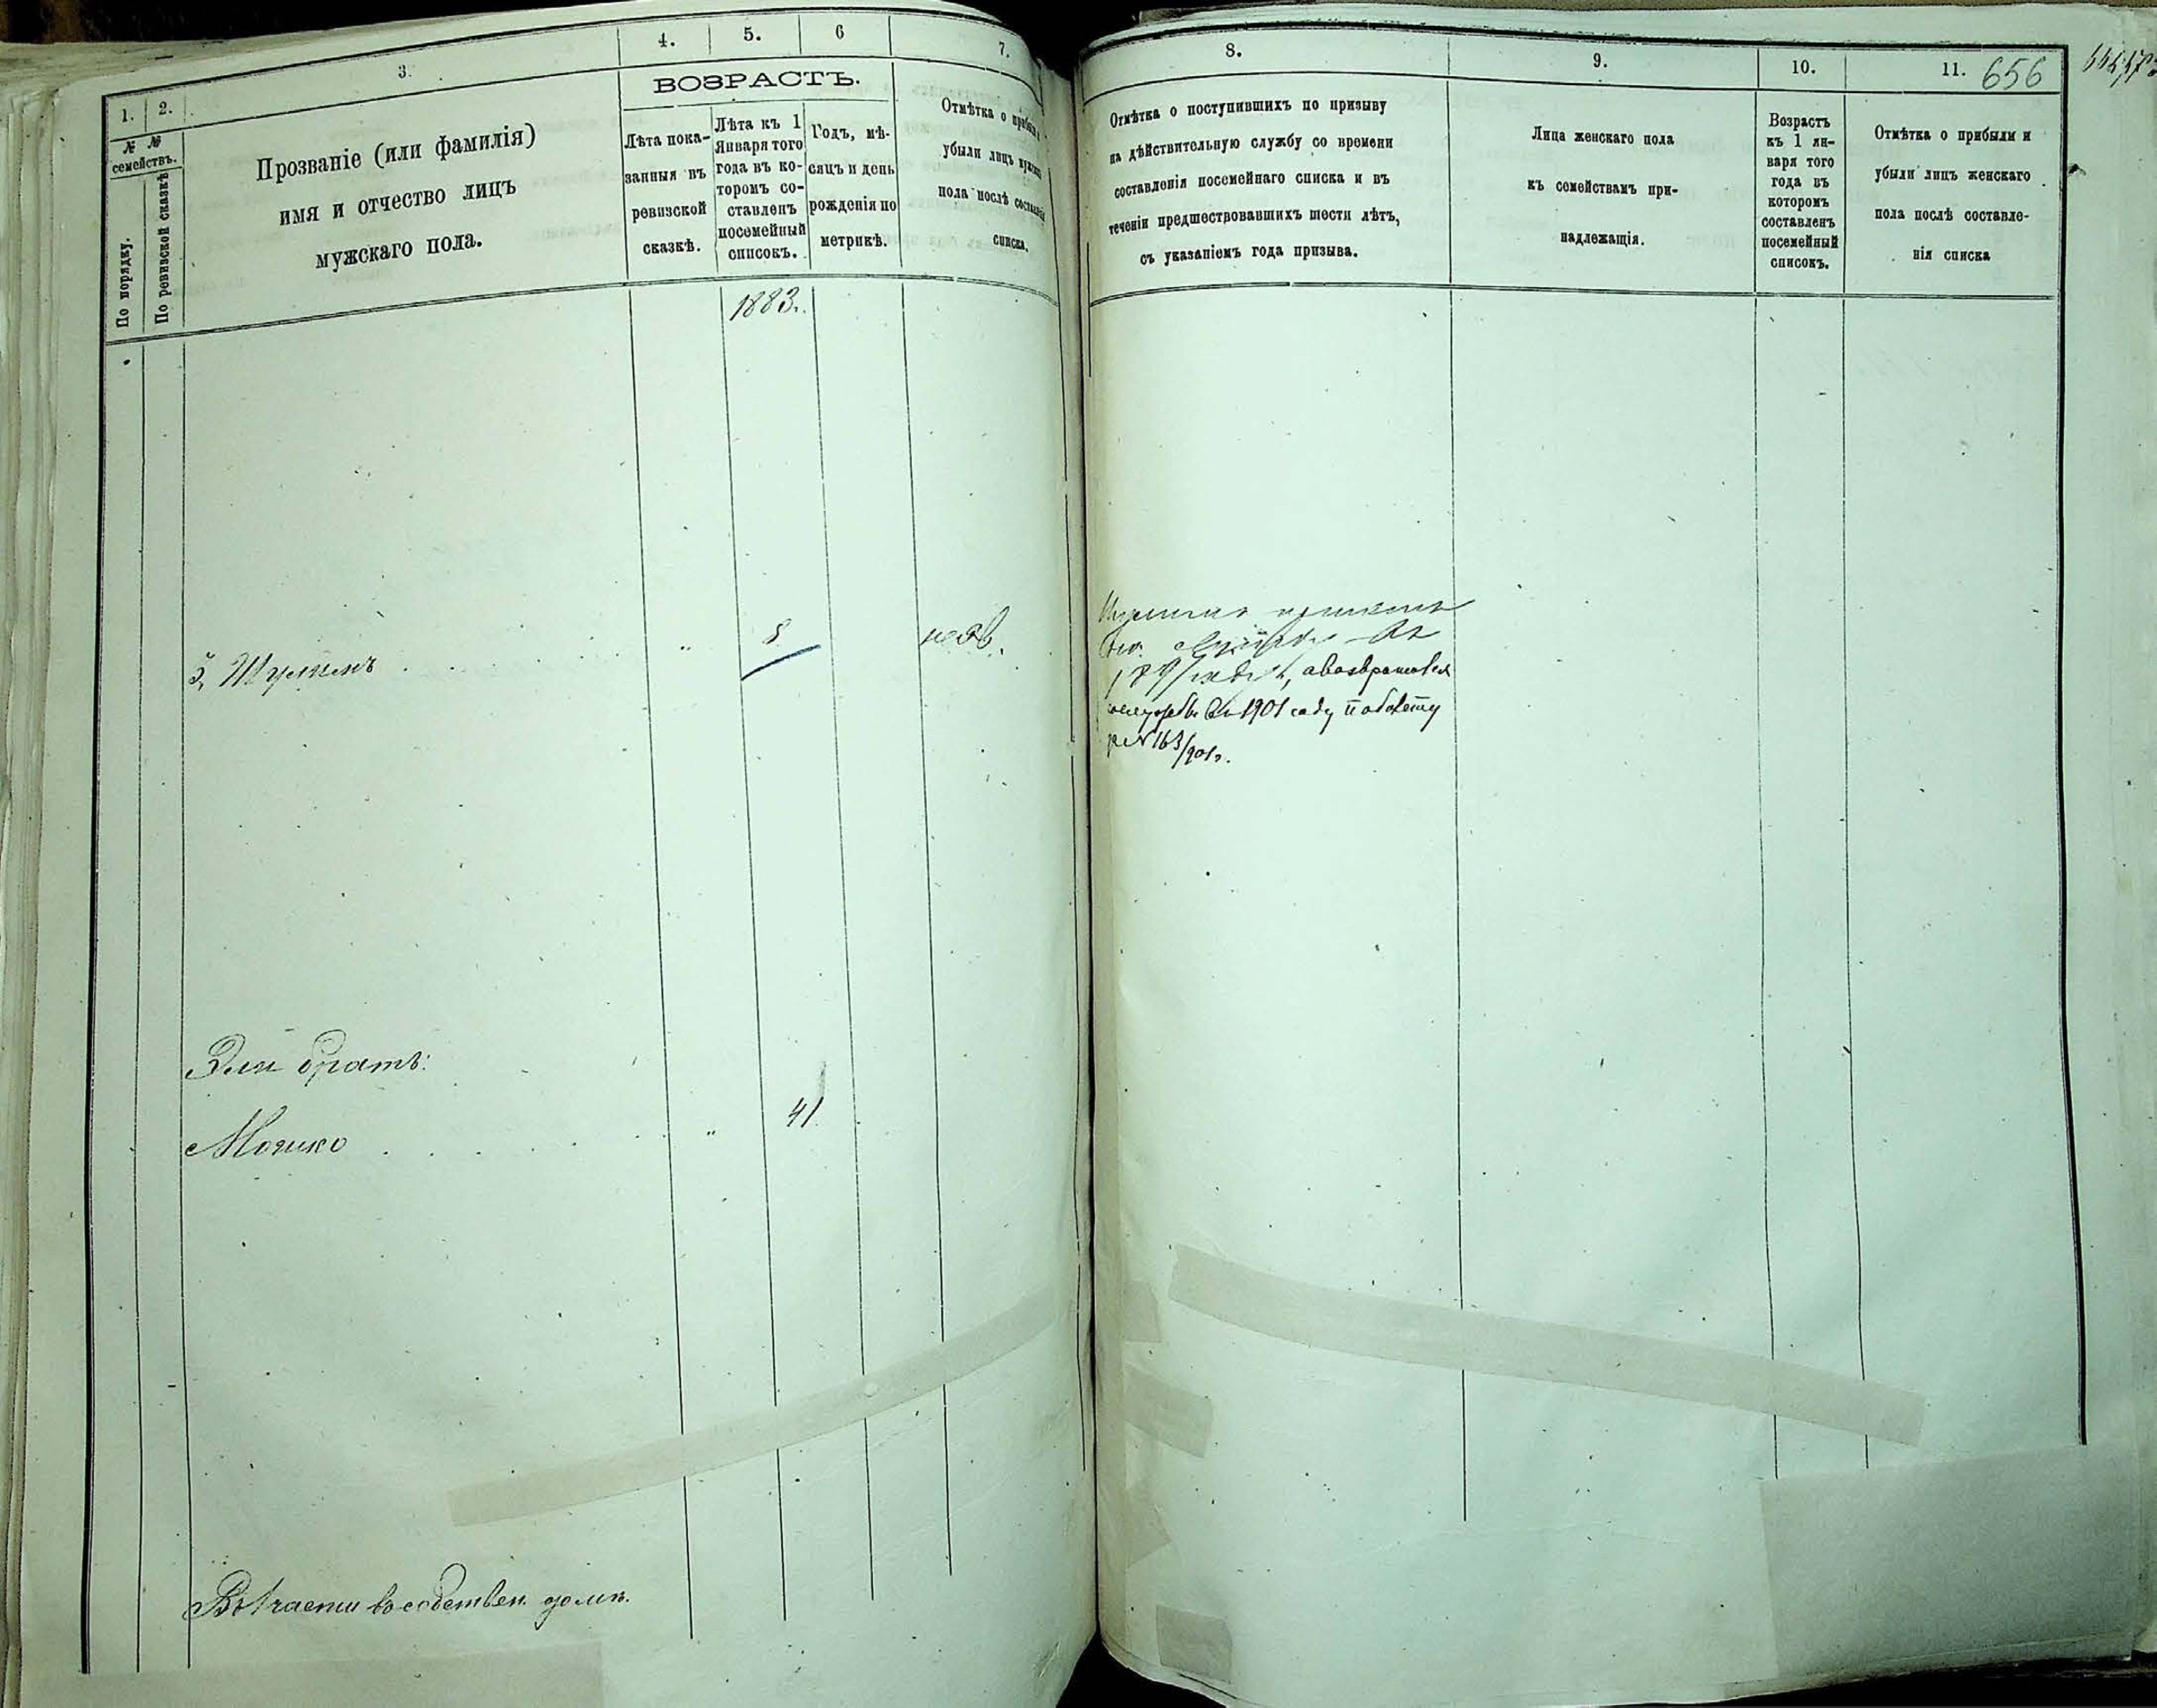 1. 2. 3. 4. 5. 6 7.
№ № семействъ.
По порядку.
По ревизской сказкѣ
Прозваніе (или фамилія)
имя и отчество лицъ
мужскаго пола.
ВОЗРАСТЪ.
Лѣта пока-
занныя въ
ревизской
сказкѣ.
Лѣта къ 1
Января того
года въ ко-
торомъ со-
ставленъ
посемейный
списокъ.
Годъ, мѣ-
сяцъ и день
рожденія по
метрикѣ.
Отмѣтка о прибыли
убыли лицъ мужскаго
пола послѣ составленія
списка.
1883.
3, 
8
неяв.
братъ:
Мошко
41
В 1 части въ собствен. домѣ.
8. 9. 10. 11. 656
Отмѣтка о поступившихъ по призыву
на дѣйствительную службу со времени
составленія посемейнаго списка и въ
теченіи предшествовавшихъ шести лѣтъ,
съ указаніемъ года призыва.
Лица женскаго пола
къ семействамъ при-
надлежащія.
Возрастъ
къ 1 ян-
варя того
года въ
которомъ
составленъ
посемейный
списокъ.
Отмѣтка о прибыли и
убыли лицъ женскаго
пола послѣ составле-
нія списка
1901 году по билету
№ 163/901г.